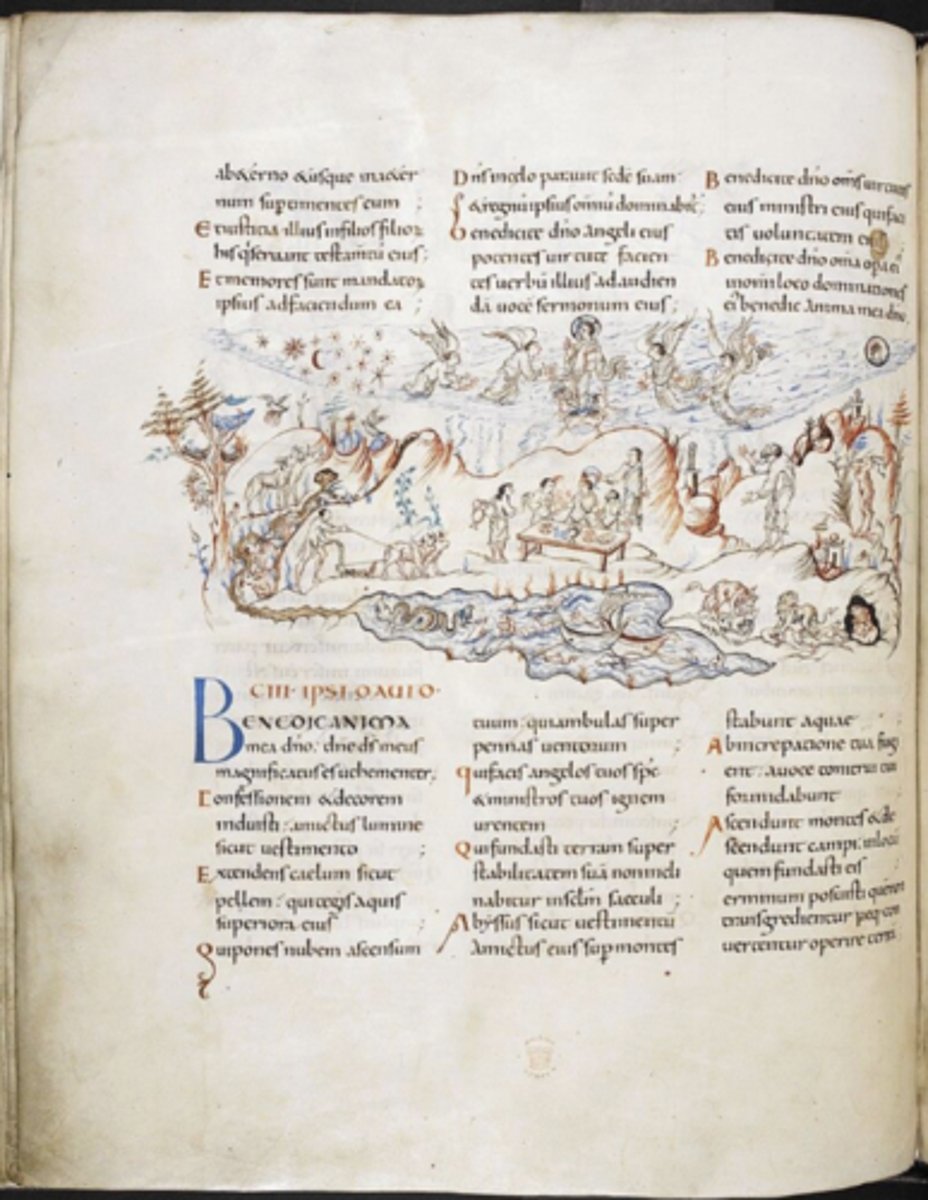 num suptimentes eum
Et iusticia illius infilios filior
his qseruant testamtu eius;
Et memores sunt mandator
ipsius adfaciendum ea;
Dns incelo parauit sede suam
& regnu ipsius omniu dominabit;
Benedicite dno angeli eius
potentes uirtute facien
tes uerbu illius ad audien
da uoce sermonum eius;
Benedicite dno oms uirtutes
eius ministri eius quifaci
tis uoluntatem
Benedicite dno omia opa ei
inomi loco dominationes
ei benedic anima mea dno
CIII IPSI DAUID
BENEDIC ANIMA
mea dno: dne ds meus
magnificatus es uehementer;
Confessionem & decorem
induisti: amictus lumine
sicut uestimento;
Extendens caelum sicut
pellem: qui tegis aquis
superiora eius;
Qui ponis nubem ascensum
tuum: qui ambulas super
pennas uentorum
Qui facis angelos tuos spc
& ministros tuos ignem
urentem
Qui fundasti terram super
stabilitatem sua non incli
nabitur inselm saeculi;
Abyssus sicut uestimentu
amictus eius sup montes
stabunt aquae
Ab increpatione tua fugi
ent: a uoce tonitrui tui
formidabunt
Ascendunt montes & de
scendunt campi: inlocu
quem fundasti eis
terminum posuisti quem
transgredientur neq con
uertentur operire terra